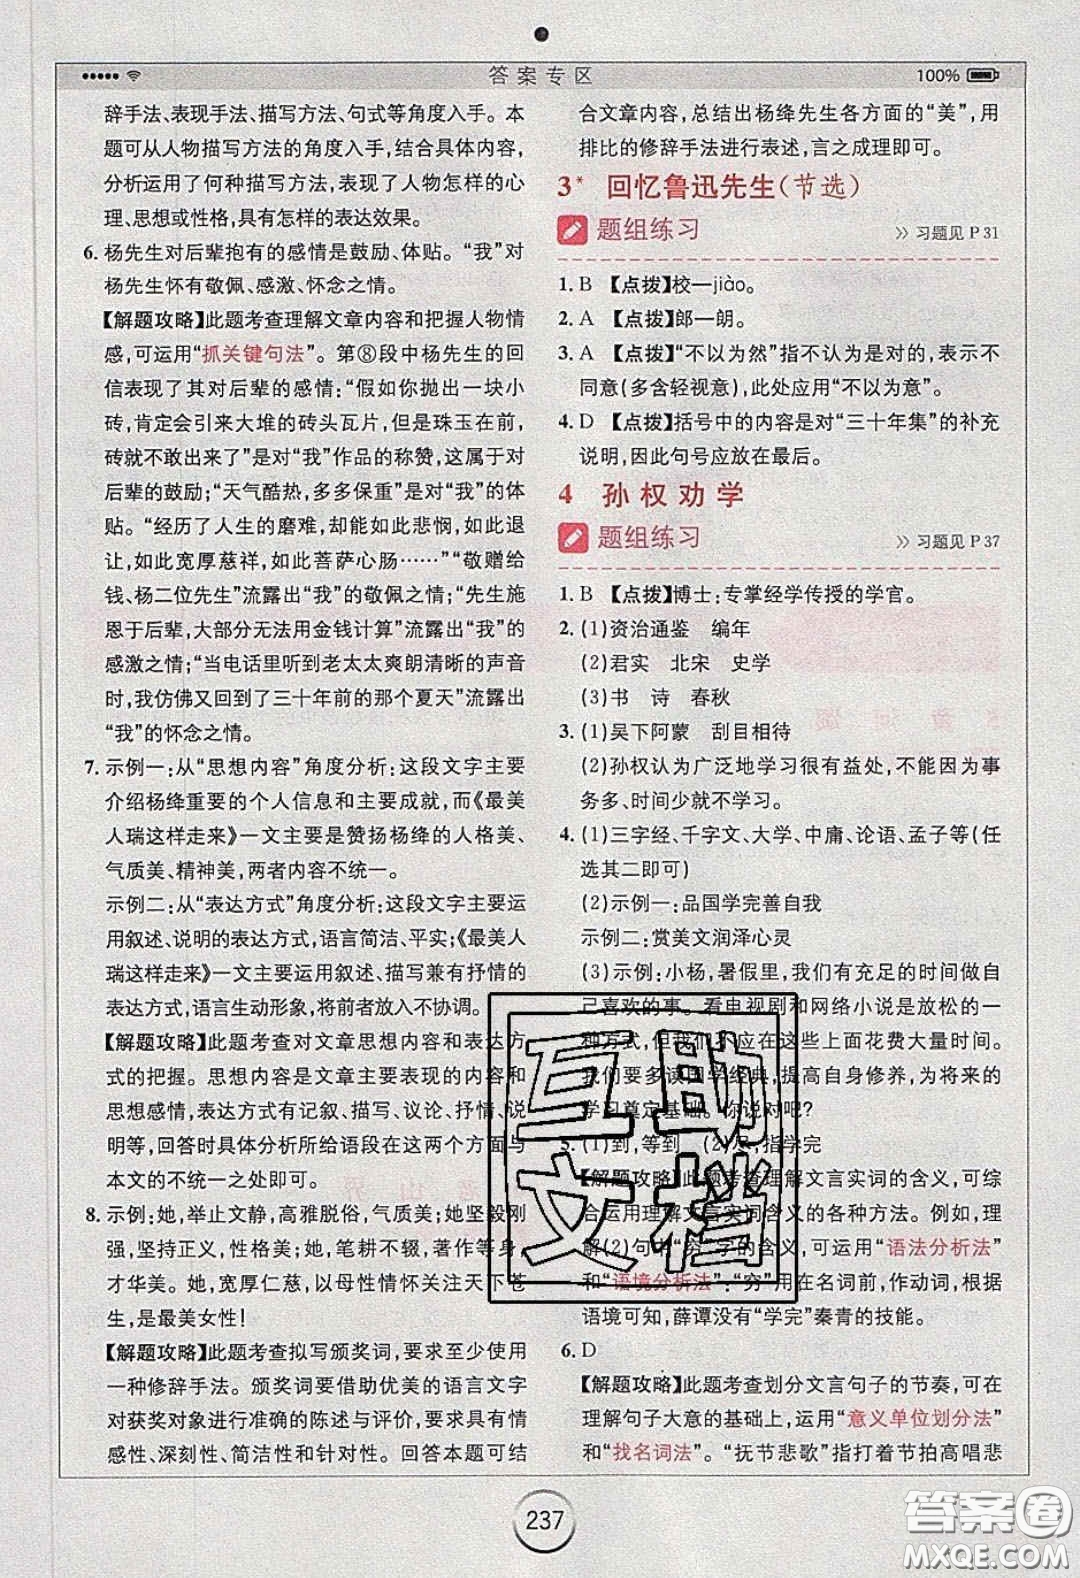 答案专区
100%
辞手法、表现手法、描写方法、句式等角度入手。本
题可从人物描写方法的角度入手,结合具体内容,
分析运用了何种描写方法,表现了人物怎样的心
理、思想或性格,具有怎样的表达效果。
6. 杨先生对后辈抱有的感情是鼓励、体贴。“我”对
杨先生怀有敬佩、感激、怀念之情。
【解题攻略】此题考查理解文章内容和把握人物情
感,可运用“抓关键句法”。第⑧段中杨先生的回
信表现了其对后辈的感情:“假如你抛出一块小
砖,肯定会引来大堆的砖头瓦片,但是珠玉在前,
砖就不敢出来了”是对“我”作品的称赞,这是对
后辈的鼓励;“天气酷热,多多保重”是对“我”的体
贴。“经历了人生的磨难,却能如此悲悯,如此退
让,如此宽厚慈祥,如此菩萨心肠……”“敬赠给
钱、杨二位先生”流露出“我”的敬佩之情;“先生施
恩于后辈,大部分无法用金钱计算”流露出“我”的
感激之情;“当电话里听到老太太爽朗清晰的声音
时,我仿佛又回到了三十年前的那个夏天”流露出
“我”的怀念之情。
7. 示例一:从“思想内容”角度分析:这段文字主要
介绍杨绛重要的个人信息和主要成就,而《最美
人瑞这样走来》一文主要是赞扬杨绛的人格美、
气质美、精神美,两者内容不统一。
示例二:从“表达方式”角度分析:这段文字主要运
用叙述、说明的表达方式,语言简洁、平实;《最美人
瑞这样走来》一文主要运用叙述、描写兼有抒情的
表达方式,语言生动形象,将前者放入不协调。
【解题攻略】此题考查对文章思想内容和表达方
式的把握。思想内容是文章主要表现的内容和
思想感情,表达方式有记叙、描写、议论、抒情、说
明等,回答时具体分析所给语段在这两个方面与
本文的不统一之处即可。
8. 示例:她,举止文静,高雅脱俗,气质美;她坚毅刚
强,坚持正义,性格美;她,笔耕不辍,著作等身,
才华美。她,宽厚仁慈,以母性情怀关注天下苍
生,是最美女性!
【解题攻略】此题考查拟写颁奖词,要求至少使用
一种修辞手法。颁奖词要借助优美的语言文字
对获奖对象进行准确的陈述与评价,要求具有情
感性、深刻性、简洁性和针对性。回答本题可结
合文章内容,总结出杨绛先生各方面的“美”,用
排比的修辞手法进行表述,言之成理即可。
3* 回忆鲁迅先生(节选)
题组练习 >> 习题见 P 31
1. B 【点拨】校—jiào。
2. A 【点拨】郎—朗。
3. A 【点拨】“不以为然”指不认为是对的,表示不
同意(多含轻视意),此处应用“不以为意”。
4. D 【点拨】括号中的内容是对“三十年集”的补充
说明,因此句号应放在最后。
4 孙权劝学
题组练习 >> 习题见 P 37
1. B 【点拨】博士:专掌经学传授的学官。
2. (1)资治通鉴 编年
(2)君实 北宋 史学
(3)书 诗 春秋
3. (1)吴下阿蒙 刮目相待
(2)孙权认为广泛地学习很有益处,不能因为事
务多、时间少就不学习。
4. (1)三字经、千字文、大学、中庸、论语、孟子等(任
选其二即可)
(2)示例一:品国学完善自我
示例二:赏美文润泽心灵
(3)示例:小杨,暑假里,我们有充足的时间做自
己喜欢的事。看电视剧和网络小说是放松的一
种方式,但我们不应在这些上面花费大量时间。
我们要多读国学经典,提高自身修养,为将来的
学习奠定基础。你说对吧?
5. (1)到,等到 (2)尽,指学完
【解题攻略】此题考查理解文言实词的含义,可综
合运用理解文言实词含义的各种方法。例如,理
解(2)句中“穷”字的含义,可运用“语法分析法”
和“语境分析法”:“穷”用在名词前,作动词,根据
语境可知,薛谭没有“学完”秦青的技能。
6. D
【解题攻略】此题考查划分文言句子的节奏,可在
理解句子大意的基础上,运用“意义单位划分法”
和“找名词法”。“抚节悲歌”指打着节拍高唱悲
互助
文档
237
答案圈
MXQE.COM